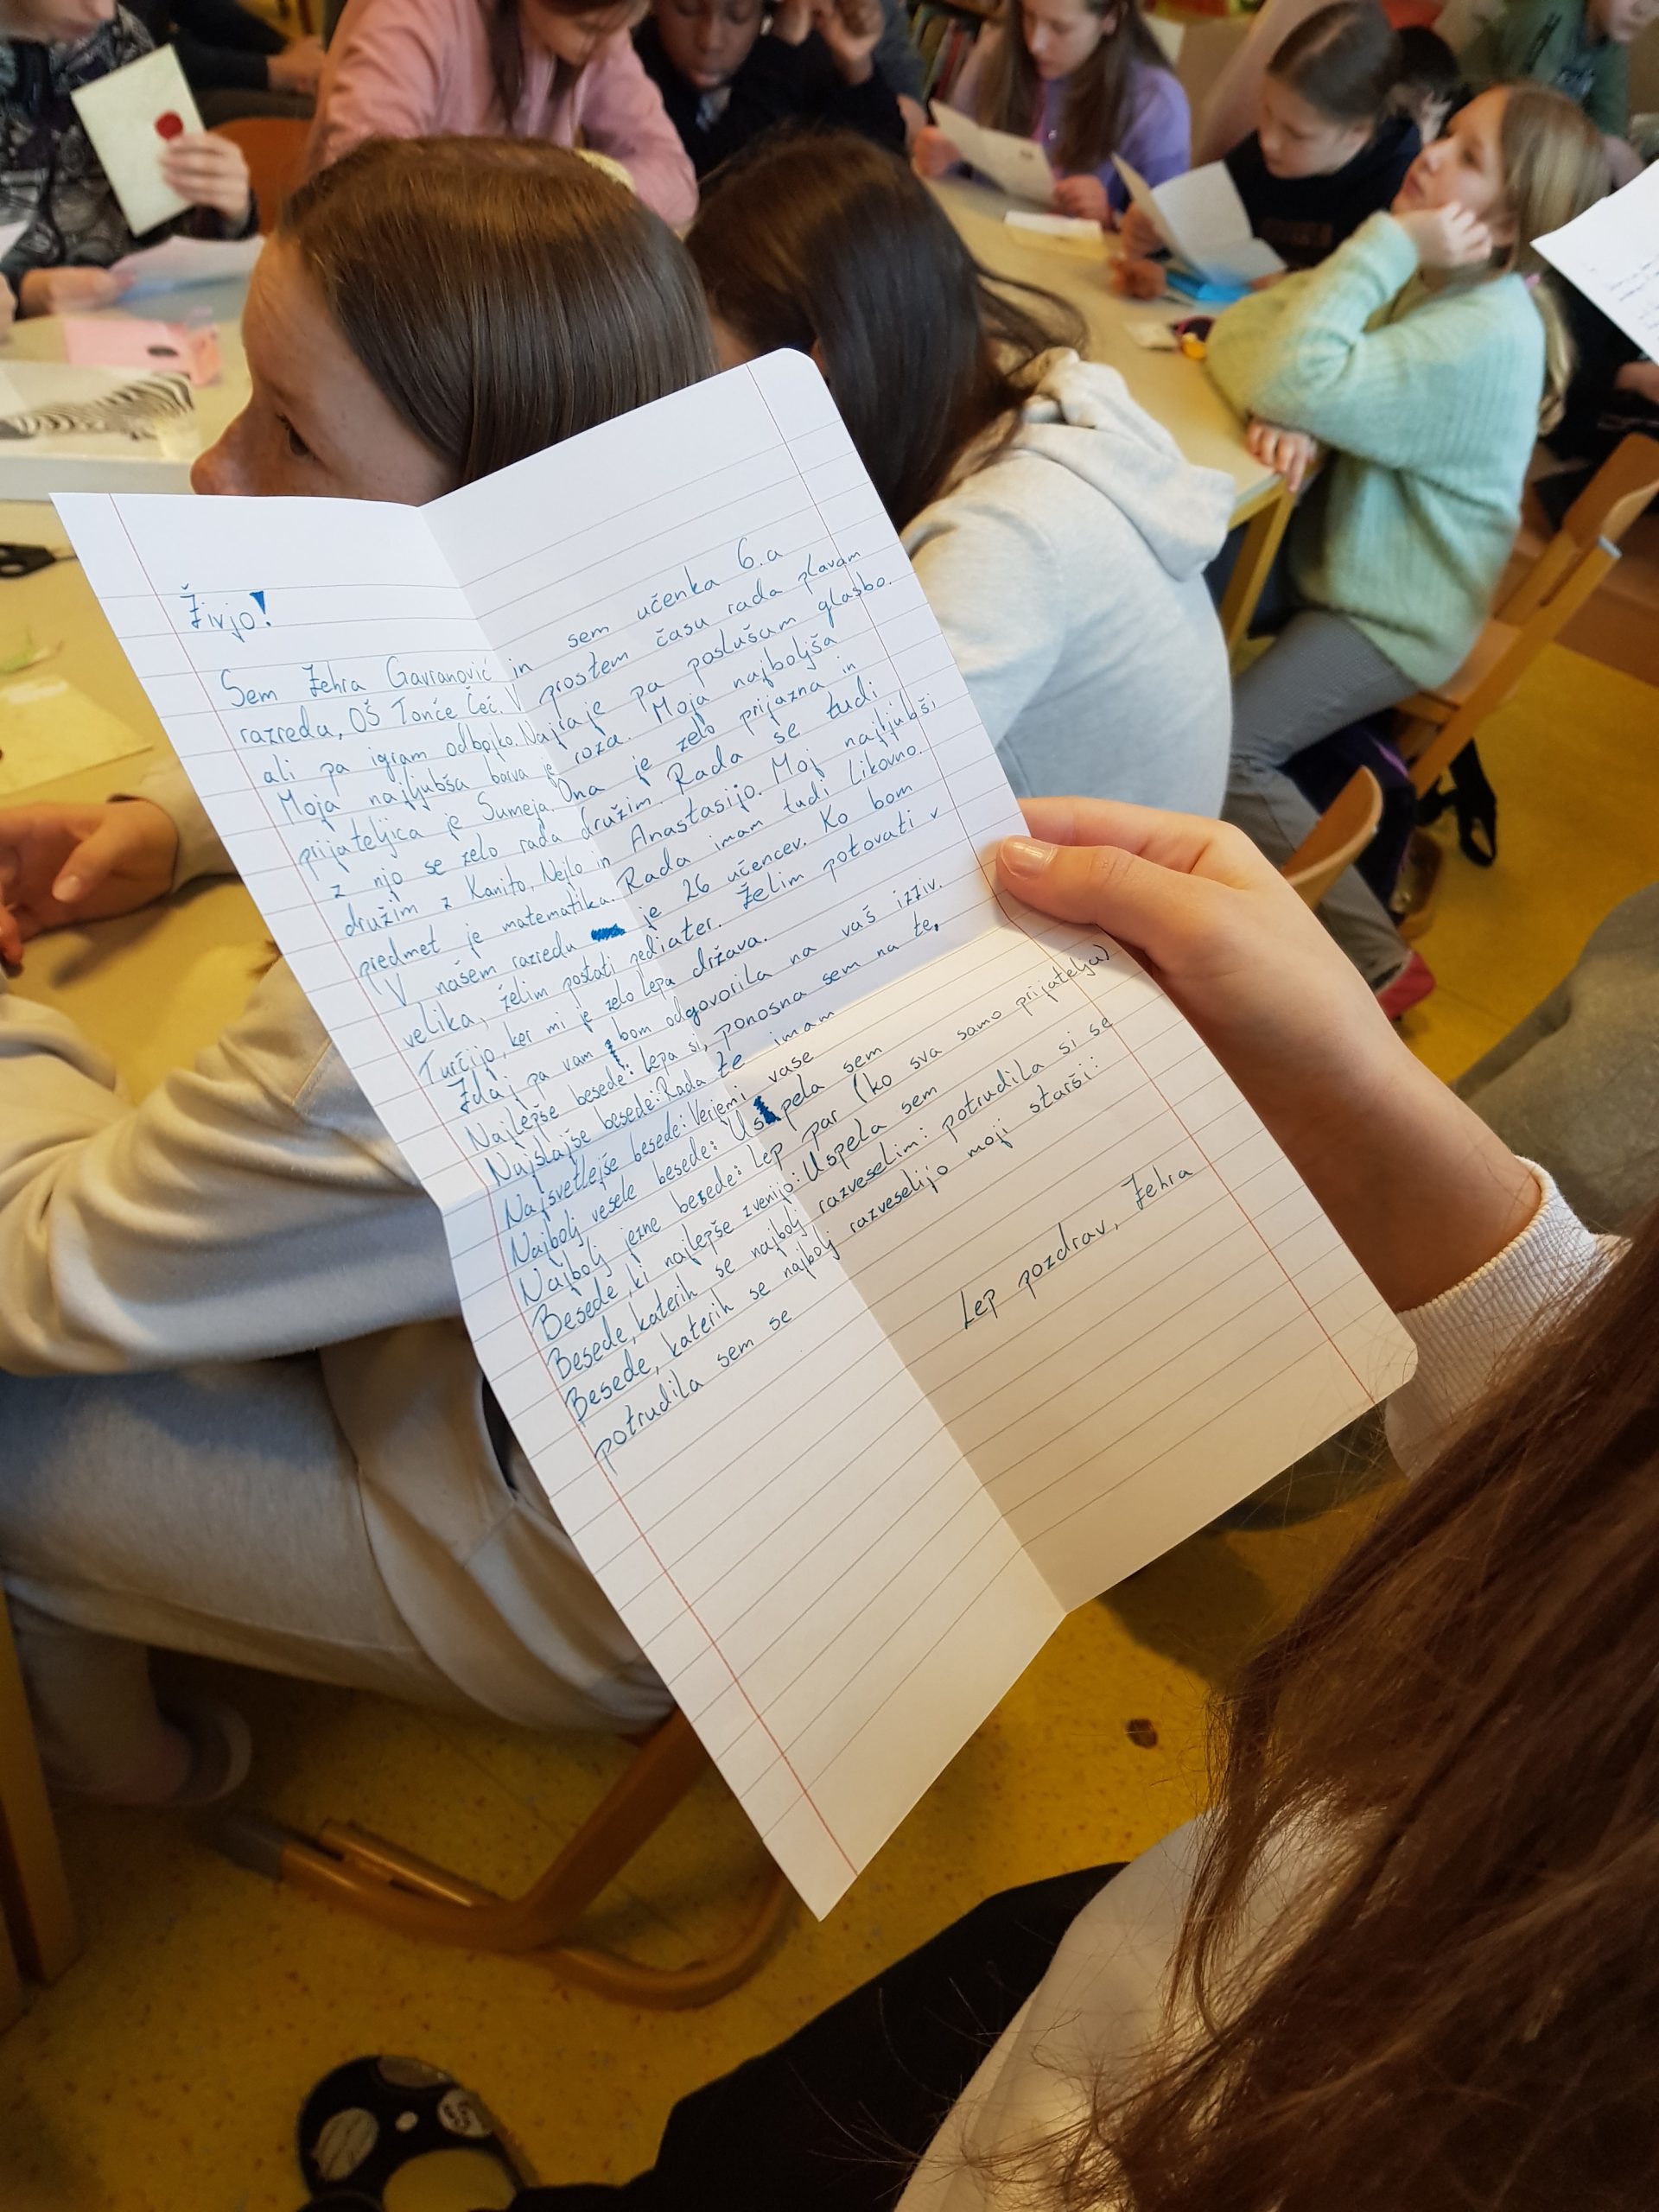 Živjo!
Sem Zehra Gavranović in sem učenka 6.a
razreda, OŠ Tonče Čeč. V prostem času rada plavam
ali pa igram odbojko. Najraje pa poslušam glasbo.
Moja najljubša barva je roza. Moja najboljša
prijateljica je Sumeja. Ona je zelo prijazna in
z njo se zelo rada družim. Rada se tudi
družim z Kanito, Nejlo in Anastasijo. Moj najljubši
predmet je matematika. Rada imam tudi likovno.
V našem razredu je 26 učencev. Ko bom
velika, želim postati pediater. Želim potovati v
Turčijo, ker mi je zelo lepa država.
Zdaj pa vam bom odgovorila na vaš izziv.
Najlepše besede: Lepa si, ponosna sem na te.
Najslajše besede: Rada te imam
Najsvetlejše besede: Verjemi vase
Najbolj vesele besede: Uspela sem
Najbolj jezne besede: Lep par (ko sva samo prijatelja)
Besede, ki najlepše zvenijo: Uspela sem
Besede, katerih se najbolj razveselim: potrudila si se
Besede, katerih se najbolj razveselijo moji starši:
potrudila sem se
Lep pozdrav, Zehra